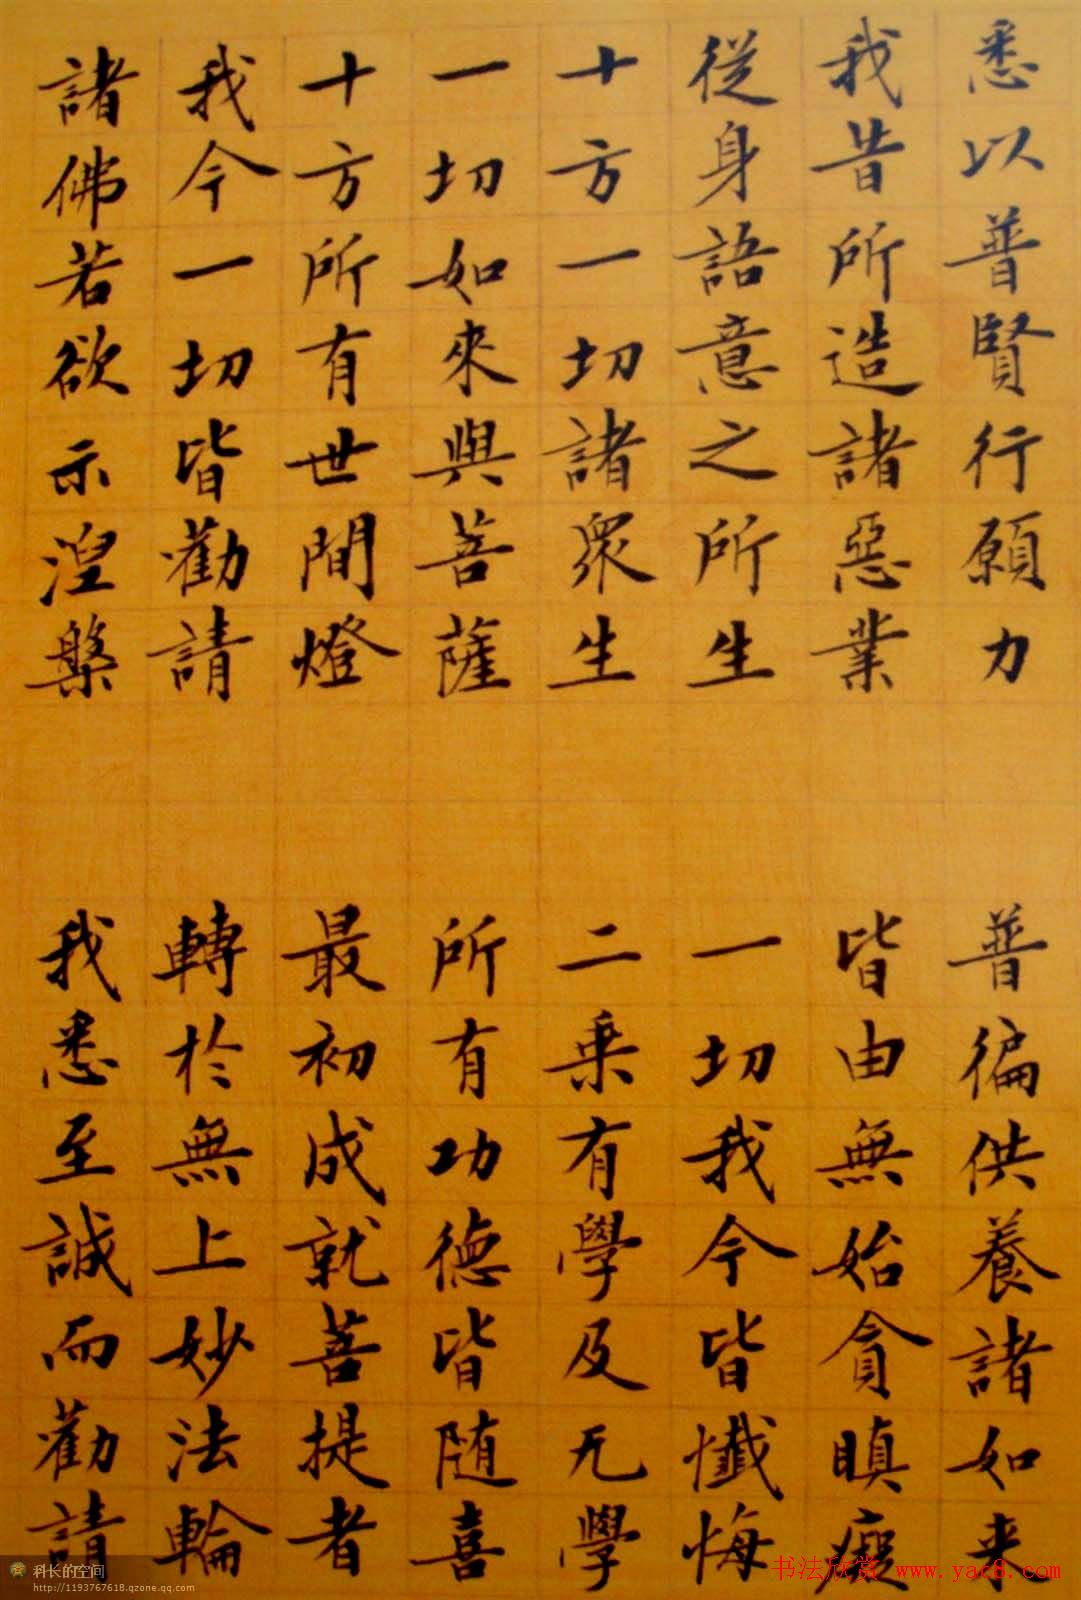 悉以普賢行願力
普徧供養諸如来
我昔所造諸惡業
皆由無始貪瞋癡
從身語意之所生
一切我今皆懺悔
十方一切諸衆生
二乗有學及无學
一切如來與菩薩
所有功德皆随喜
十方所有世間燈
最初成就菩提者
我今一切皆勸請
轉於無上妙法輪
諸佛若欲示涅槃
我悉至誠而勸請
科长的空间
http://1193767618.qzone.qq.com
书法欣赏 www.yac8.com